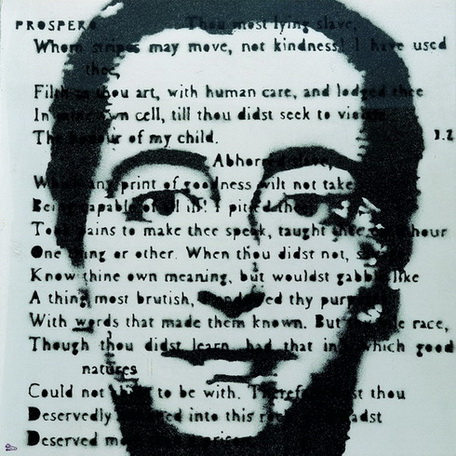 PROSPERO Thou most lying slave,
Whom stripes may move, not kindness! I have used
thee,
Filth as thou art, with human care, and lodged thee
In mine own cell, till thou didst seek to violate
The honour of my child. 1.2
Abhorred slave,
Which any print of goodness wilt not take
Being capable of all ill! I pitied thee
Took pains to make thee speak, taught thee hour
One thing or other. When thou didst not,
Know thine own meaning, but wouldst gabble like
A thing most brutish, endowed thy
With words that made them known. But race,
Though thou didst learn, had that in which good
natures
Could not to be with. Therefore thou
Deservedly into this
Deserved